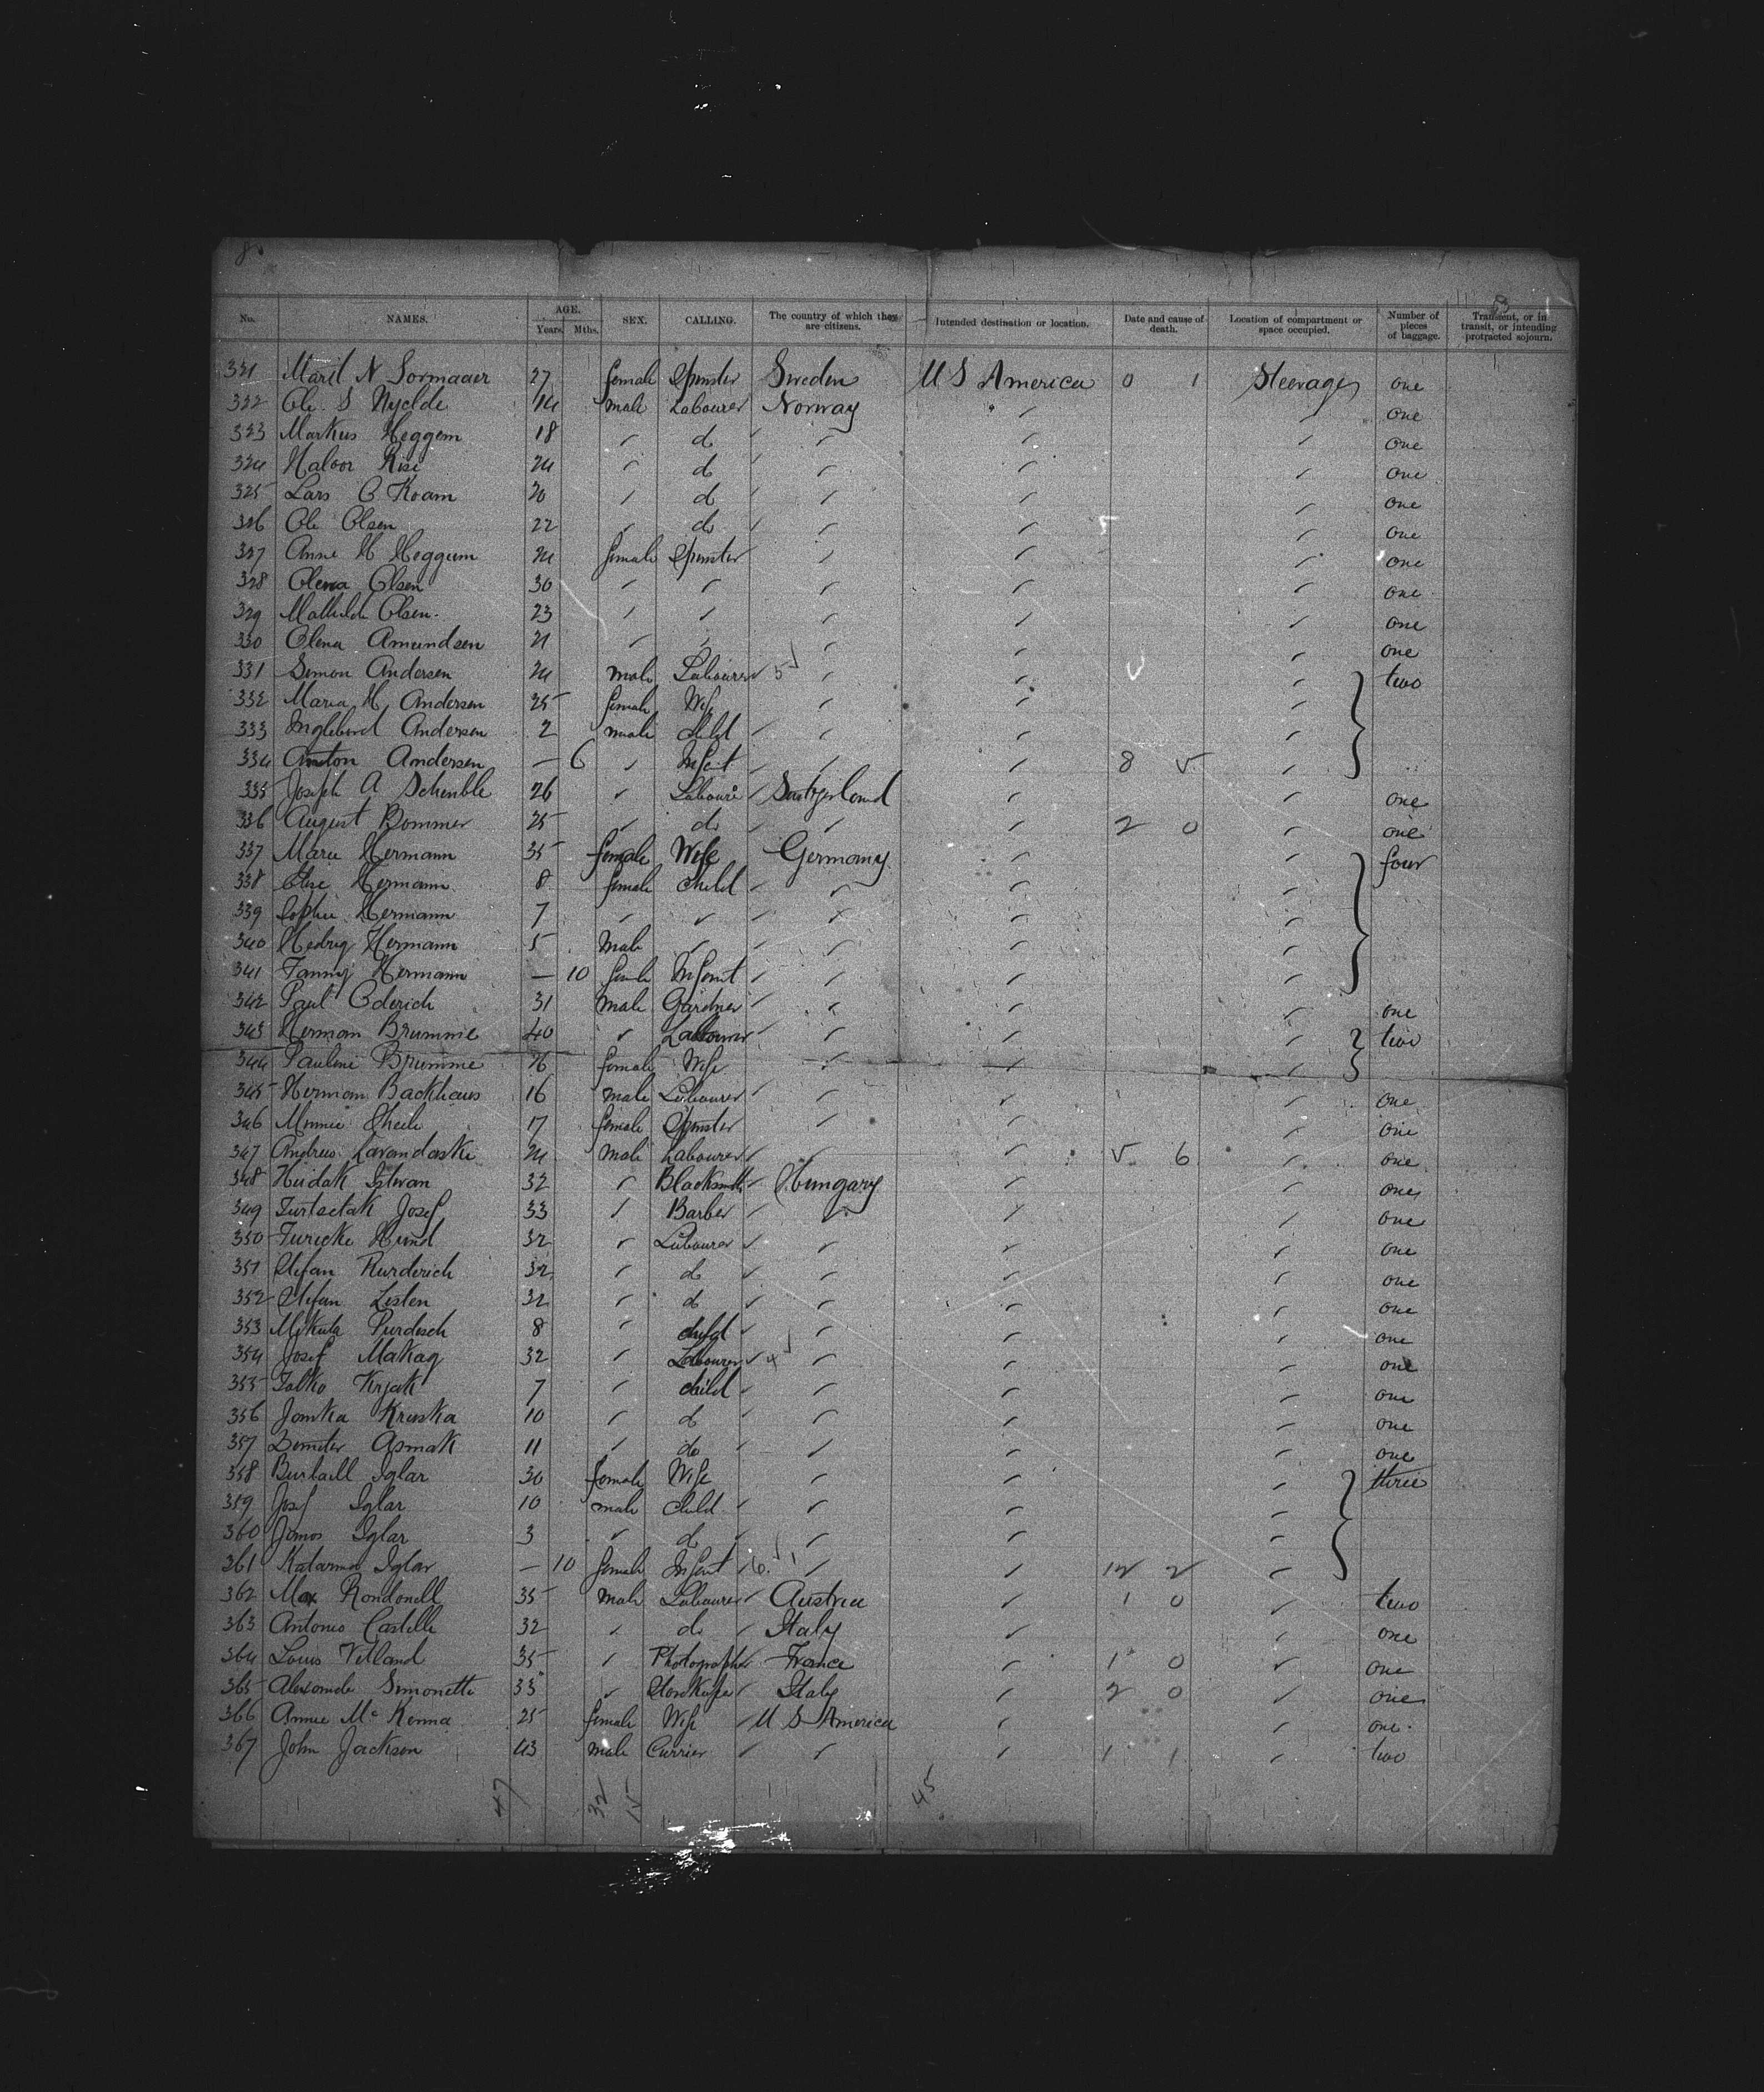 8
No. NAMES. AGE. Years. Mths. SEX. CALLING. The country of which they are citizens. Intended destination or location. Date and cause of death. Location of compartment or space occupied. Number of pieces of baggage. Transient, or in transit, or intending protracted sojourn.
321 Marit N 27 female Spinster Sweden U S America 0 1 Steerage one
322 Ole S 14 male Labourer Norway one
323 Markus Heggem 18 " do " " " " one
324 Halvor Rise 24 " do " " " one
325 Lars O Koam 20 " do " " " one
326 Ole Olsen 22 " do " " " one
327 Anne H Heggum 24 female Spinster " " " one
328 Olena Olsen 30 " " " " " one
329 Mathilde Olsen 23 " " " " " one
330 Olena Amundsen 21 " " " " " one
331 Simon Andersen 24 male Labourer 5 " " " two
332 Maria H Andersen 25 female Wife " " "
333 Andersen 2 male child " " "
334 Anton Andersen — 6 " Infant " " 8 5 "
335 Joseph A Schenble 26 " Labourer Switzerland " " one
336 August Bommer 25 " do " " 2 0 " one
337 Marie Hermann 35 female Wife Germany " " four
338 Else Hermann 8 female child " " "
339 Sophie Hermann 7 " " " " "
340 Hedwig Hermann 5 Male " " " "
341 Fanny Hermann — 10 female Infant " " "
342 Paul Oderich 31 male Gardner " " " one
343 Herman Brumme 40 " Labourer " " " two
344 Pauline Brumme 26 female Wife " " "
345 Herman Backhaus 16 male Labourer " " " one
346 Minnie Sheile 17 female Spinster " " " one
347 Andreas Lavandoski 24 male Labourer " " 5 6 " one
348 Hudak Istvan 32 " Blacksmith Hungary " " one
349 Josef 33 " Barber " " " one
350 32 " Labourer " " " one
351 Stefan 32 " do " " " one
352 Stefan Lesten 32 " do " " " one
353 Mikula Purdesch 8 " child " " " one
354 Josef Makag 32 " Labourer 4 " " " one
355 Krjak 7 " child " " " one
356 Janka Kruska 10 " do " " " one
357 Demeter Asmak 11 " do " " " one
358 Iglar 30 female Wife " " " three
359 Josef Iglar 10 male child " " "
360 Janos Iglar 3 " do " " "
361 Katarina Iglar — 10 female Infant 6 " " 12 2 "
362 Max Rondonell 35 male Labourer Austria " 1 0 " two
363 Antonio Castelle 32 " do Italy " one
364 Louis Villand 35 " Photographer France " 1 0 " one
365 Alexander Simonette 33 " Storekeeper Italy " 2 0 " one
366 Annie Mc Kenna 25 female Wife U S America " " one
367 John Jackson 43 male Currier " " 1 1 " two
47 32 15 45